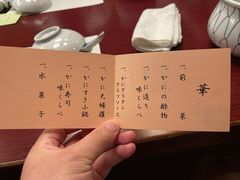 華
一、前菜
一、かにの酢物
一、かに造り
味くらべ
一、かにグラタン
一、かに天婦羅
一、かにすき小鍋
一、かに寿司
味くらべ
一、水菓子